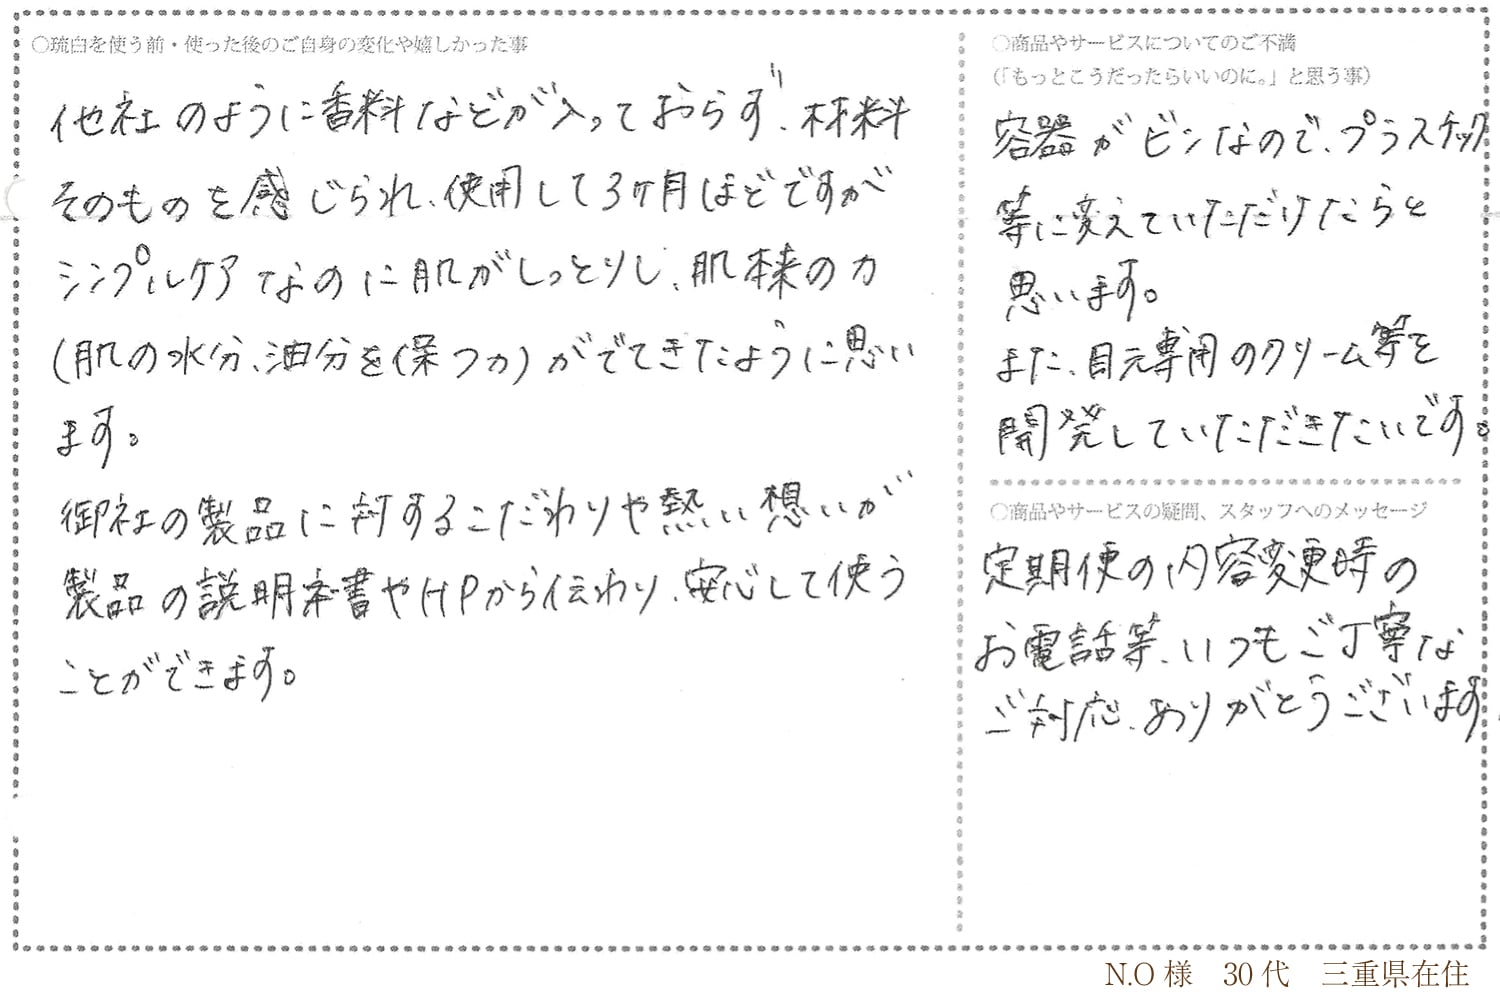 ○琉白を使う前・使った後のご自身の変化や嬉しかった事
他社のように香料などが入っておらず、材料
そのものを感じられ、使用して3ヶ月ほどですが
シンプルケアなのに肌がしっとりし、肌本来の力
(肌の水分、油分を保つ力)がでてきたように思い
ます。
御社の製品に対するこだわりや熱い想いが
製品の説明書やHPから伝わり、安心して使う
ことができます。
○商品やサービスについてのご不満
(「もっとこうだったらいいのに。」と思う事)
容器がビンなので、プラスチック
等に変えていただけたらと
思います。
また、目元専用のクリーム等を
開発していただきたいです。
○商品やサービスの疑問、スタッフへのメッセージ
定期便の内容変更時の
お電話等、いつもご丁寧な
ご対応、ありがとうございます.
N.O 様　30代　三重県在住